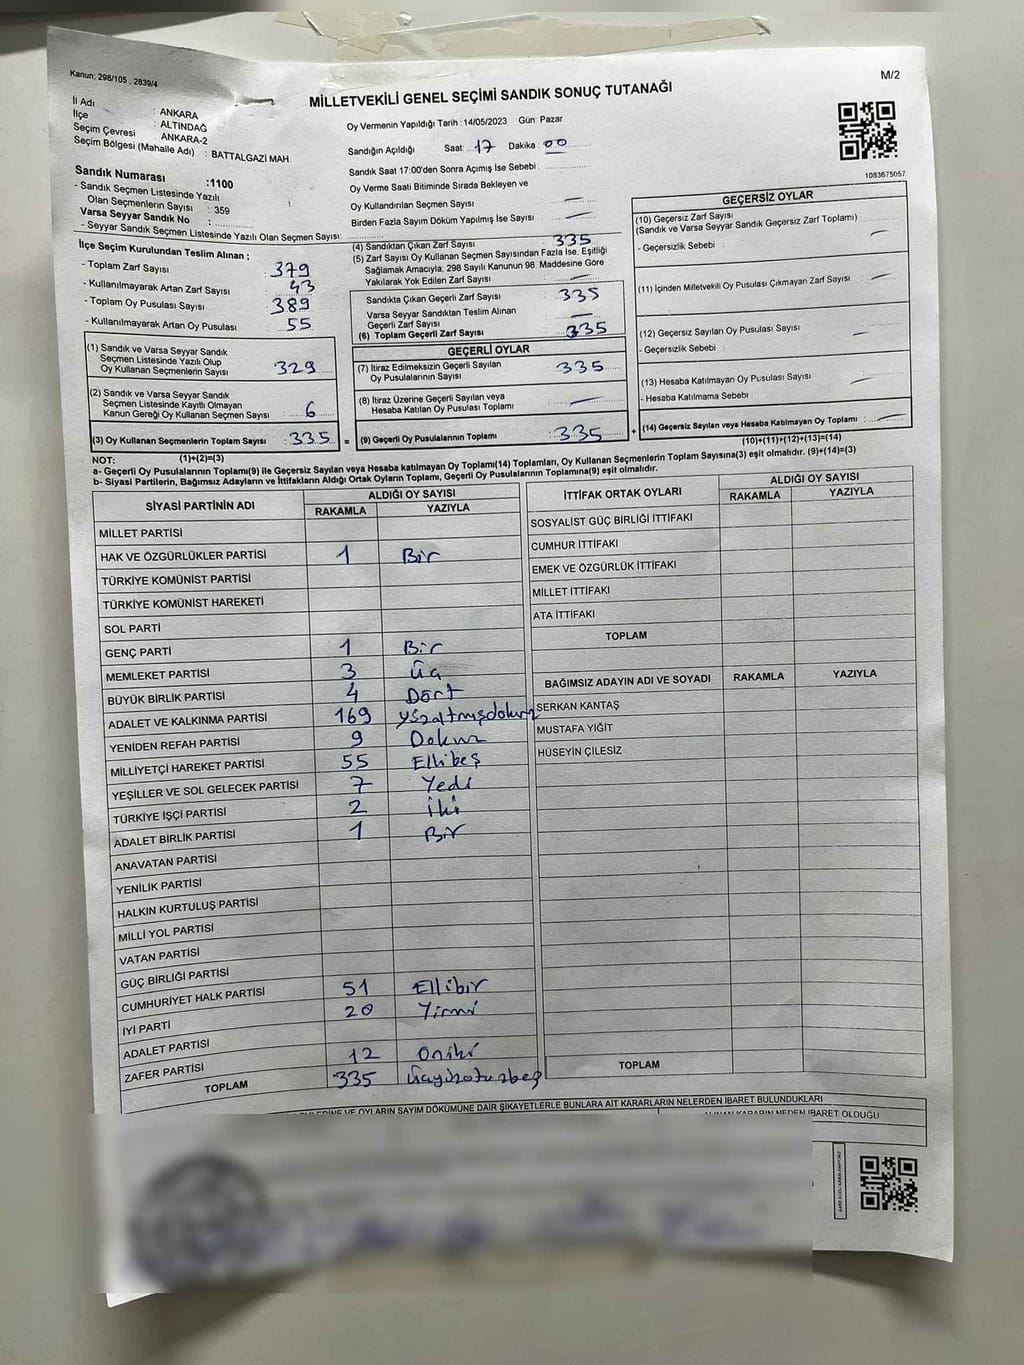 Kanun; 298/105 , 2839/4
M/2
MİLLETVEKİLİ GENEL SEÇİMİ SANDIK SONUÇ TUTANAĞI
İl Adı : ANKARA
İlçe : ALTINDAĞ
Seçim Çevresi : ANKARA-2
Seçim Bölgesi (Mahalle Adı) : BATTALGAZİ MAH.
Sandık Numarası :1100
- Sandık Seçmen Listesinde Yazılı
Olan Seçmenlerin Sayısı : 359
Varsa Seyyar Sandık No :
- Seyyar Sandık Seçmen Listesinde Yazılı Olan Seçmen Sayısı:
Oy Vermenin Yapıldığı Tarih :14/05/2023 Gün: Pazar
Sandığın Açıldığı Saat: 17 Dakika 00
Sandık Saat 17:00'den Sonra Açımış İse Sebebi :
Oy Verme Saati Bitiminde Sırada Bekleyen ve
Oy Kullandırılan Seçmen Sayısı : —
Birden Fazla Sayım Döküm Yapılmış İse Sayısı : —
1083675057
İlçe Seçim Kurulundan Teslim Alınan ;
- Toplam Zarf Sayısı : 379
- Kullanılmayarak Artan Zarf Sayısı : 43
- Toplam Oy Pusulası Sayısı : 389
- Kullanılmayarak Artan Oy Pusulası : 55
(1) Sandık ve Varsa Seyyar Sandık
Seçmen Listesinde Yazılı Olup
Oy Kullanan Seçmenlerin Sayısı : 329
(2) Sandık ve Varsa Seyyar Sandık
Seçmen Listesinde Kayıtlı Olmayan
Kanun Gereği Oy Kullanan Seçmen Sayısı : 6
(3) Oy Kullanan Seçmenlerin Toplam Sayısı : 335 =
(1)+(2)=(3)
(4) Sandıktan Çıkan Zarf Sayısı : 335
(5) Zarf Sayısı Oy Kullanan Seçmen Sayısından Fazla İse, Eşitliği
Sağlamak Amacıyla; 298 Sayılı Kanunun 98. Maddesine Göre
Yakılarak Yok Edilen Zarf Sayısı : —
Sandıkta Çıkan Geçerli Zarf Sayısı : 335
Varsa Seyyar Sandıktan Teslim Alınan
Geçerli Zarf Sayısı : —
(6) Toplam Geçerli Zarf Sayısı : 335
GEÇERLİ OYLAR
(7) İtiraz Edilmeksizin Geçerli Sayılan
Oy Pusulalarının Sayısı : 335
(8) İtiraz Üzerine Geçerli Sayılan veya
Hesaba Katılan Oy Pusulası Toplamı : —
(9) Geçerli Oy Pusulalarının Toplamı : 335 +
GEÇERSİZ OYLAR
(10) Geçersiz Zarf Sayısı
(Sandık ve Varsa Seyyar Sandık Geçersiz Zarf Toplamı) : —
- Geçersizlik Sebebi :
(11) İçinden Milletvekili Oy Pusulası Çıkmayan Zarf Sayısı : —
(12) Geçersiz Sayılan Oy Pusulası Sayısı : —
- Geçersizlik Sebebi :
(13) Hesaba Katılmayan Oy Pusulası Sayısı : —
- Hesaba Katılmama Sebebi :
(14) Geçersiz Sayılan veya Hesaba Katılmayan Oy Toplamı : —
(10)+(11)+(12)+(13)=(14)
NOT:
a- Geçerli Oy Pusulalarının Toplamı(9) ile Geçersiz Sayılan veya Hesaba katılmayan Oy Toplamı(14) Toplamları, Oy Kullanan Seçmenlerin Toplam Sayısına(3) eşit olmalıdır. (9)+(14)=(3)
b- Siyasi Partilerin, Bağımsız Adayların ve İttifakların Aldığı Ortak Oyların Toplamı, Geçerli Oy Pusulalarının Toplamına(9) eşit olmalıdır.
SİYASİ PARTİNİN ADI ALDIĞI OY SAYISI
RAKAMLA YAZIYLA
MİLLET PARTİSİ
HAK VE ÖZGÜRLÜKLER PARTİSİ 1 Bir
TÜRKİYE KOMÜNİST PARTİSİ
TÜRKİYE KOMÜNİST HAREKETİ
SOL PARTİ
GENÇ PARTİ 1 Bir
MEMLEKET PARTİSİ 3 Üç
BÜYÜK BİRLİK PARTİSİ 4 Dört
ADALET VE KALKINMA PARTİSİ 169 yüzaltmışdokuz
YENİDEN REFAH PARTİSİ 9 Dokuz
MİLLİYETÇİ HAREKET PARTİSİ 55 Ellibeş
YEŞİLLER VE SOL GELECEK PARTİSİ 7 Yedi
TÜRKİYE İŞÇİ PARTİSİ 2 İki
ADALET BİRLİK PARTİSİ 1 Bir
ANAVATAN PARTİSİ
YENİLİK PARTİSİ
HALKIN KURTULUŞ PARTİSİ
MİLLİ YOL PARTİSİ
VATAN PARTİSİ
GÜÇ BİRLİĞİ PARTİSİ
CUMHURİYET HALK PARTİSİ 51 Ellibir
İYİ PARTİ 20 Yirmi
ADALET PARTİSİ
ZAFER PARTİSİ 12 Oniki
TOPLAM 335 Üçyüzotuzbeş
İTTİFAK ORTAK OYLARI ALDIĞI OY SAYISI
RAKAMLA YAZIYLA
SOSYALİST GÜÇ BİRLİĞİ İTTİFAKI
CUMHUR İTTİFAKI
EMEK VE ÖZGÜRLÜK İTTİFAKI
MİLLET İTTİFAKI
ATA İTTİFAKI
TOPLAM
BAĞIMSIZ ADAYIN ADI VE SOYADI RAKAMLA YAZIYLA
SERKAN KANTAŞ
MUSTAFA YİĞİT
HÜSEYİN ÇİLESİZ
TOPLAM
VE OYLARIN SAYIM DÖKÜMÜNE DAİR ŞİKAYETLERLE BUNLARA AİT KARARLARIN NELERDEN İBARET BULUNDUKLARI
KARARIN NEDEN İBARET OLDUĞU